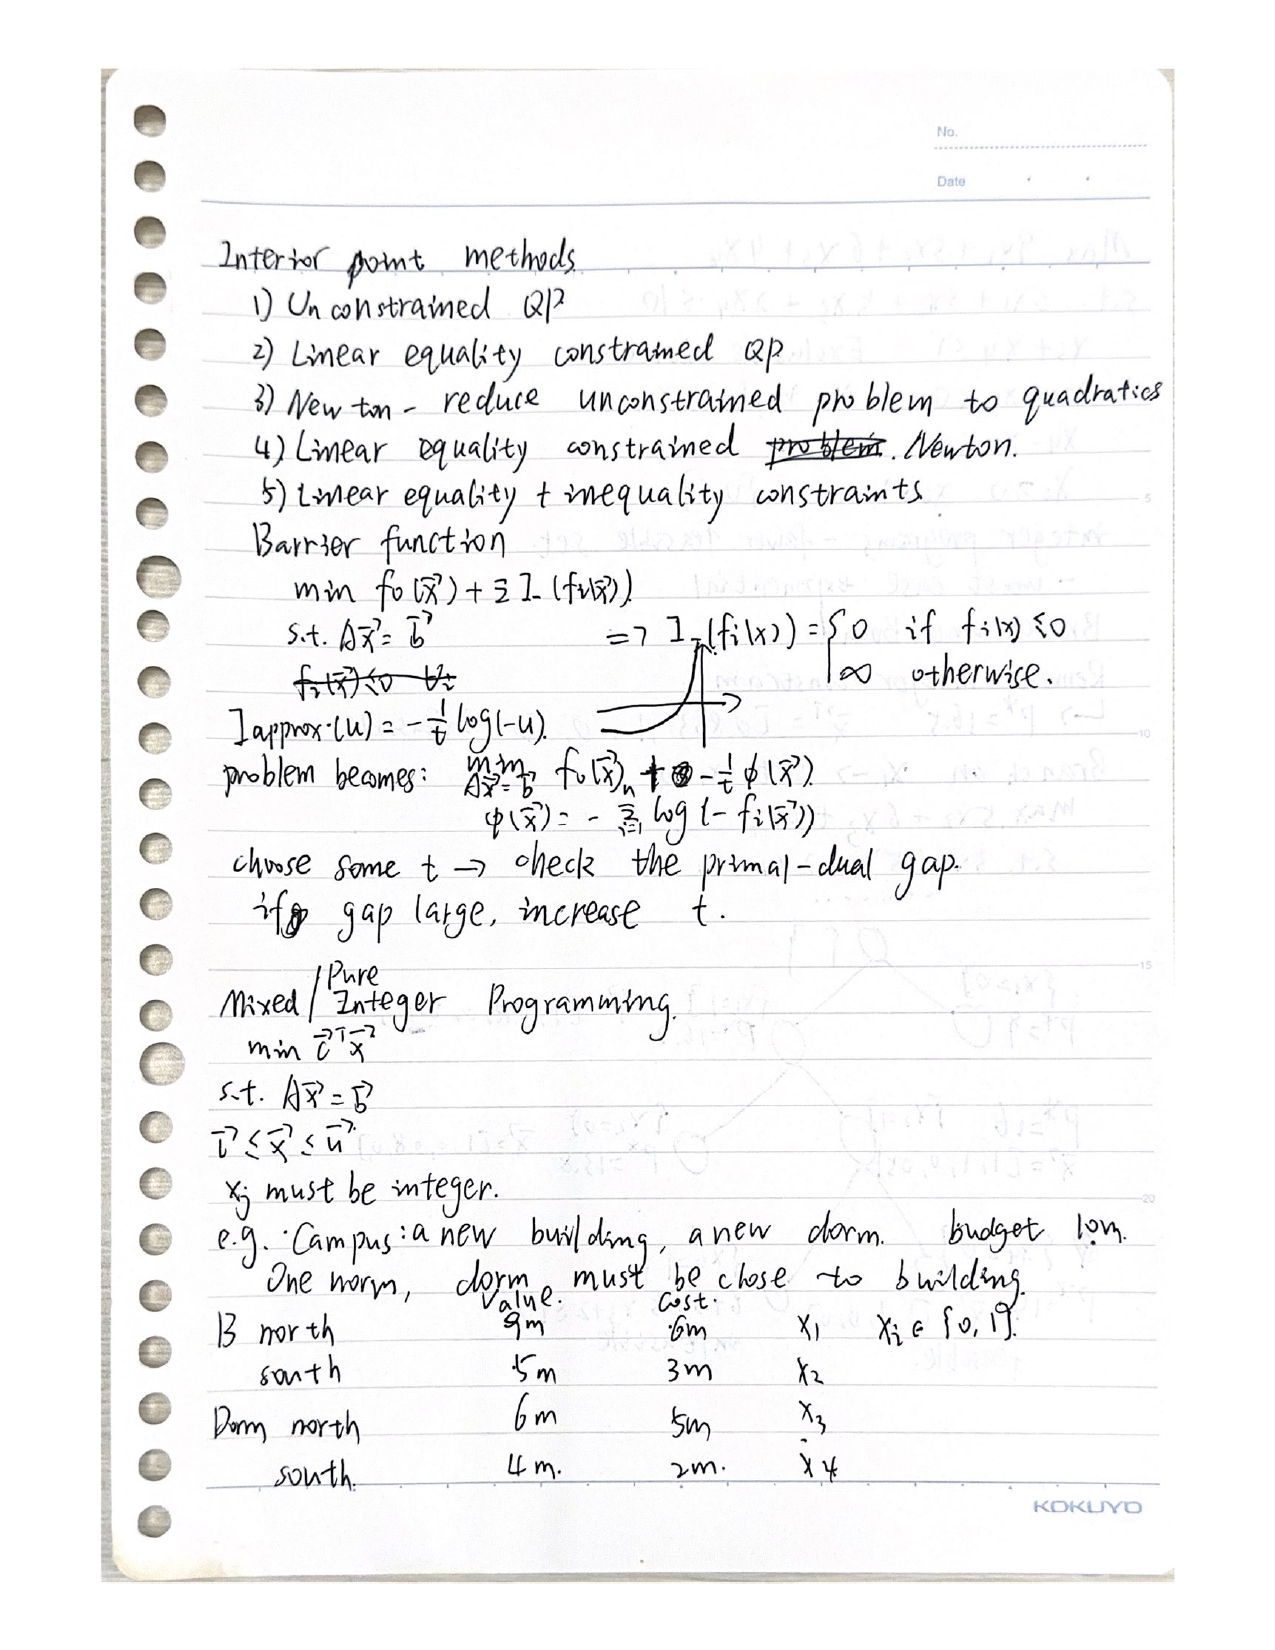 No.
Date
Interior point methods
1) Unconstrained QP
2) Linear equality constrained QP
3) Newton - reduce unconstrained problem to quadratics
4) Linear equality constrained problem. Newton.
5) Linear equality + inequality constraints
Barrier function
min f₀(x⃗) + Σ I₋(fᵢ(x⃗))
s.t. Ax⃗ = b⃗ => I₋(fᵢ(x)) = { 0 if fᵢ(x) ≤ 0
fᵢ(x⃗) ≤ 0 ∀i ∞ otherwise.
I approx.(u) = -1/t log(-u).
problem becomes: min Ax⃗=b⃗ f₀(x⃗) + -1/t φ(x⃗).
φ(x⃗) = - Σ i=1 n log(-fᵢ(x⃗))
choose some t → check the primal-dual gap.
if gap large, increase t.
Mixed / Pure Integer Programming.
min c⃗ᵀx⃗
s.t. Ax⃗ = b⃗
l⃗ ≤ x⃗ ≤ u⃗
xⱼ must be integer.
e.g. Campus: a new building, a new dorm. budget 10m.
One norm, dorm must be chose to building.
Value. Cost.
B north 9m 6m x₁ xᵢ ∈ {0,1}.
south 5m 3m x₂
Dorm north 6m 5m x₃
south. 4m. 2m. x₄
KOKUYO